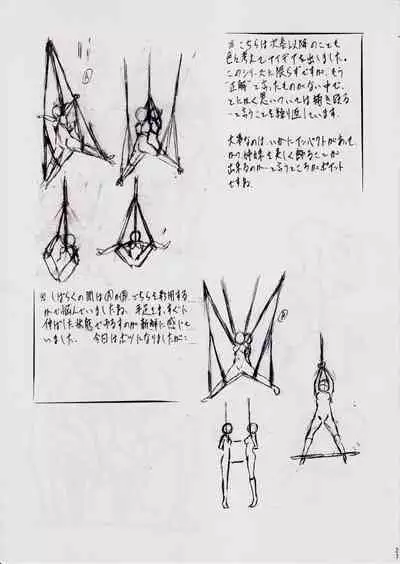 ※こちらは次巻以降のことも
色々考えてアイデアを出しました。
このシリーズに限らずですが、もう
正解と言ったものがない中で、
とにかく思いついては描き殴る
と言うことを繰り返しています。
大事なのは、いかにインパクトがあって、
かつ姉妹を美しく飾ることが
出来るのかと言うところがポイント
ですね。
Ⓐ
※しばらくの間はⒶかⒷ、どちらを採用する
かで悩んでいましたね。手足をまっすぐに
伸ばした状態でやるすのが新鮮に感じて
いました。 今回はボツになりましたが…
Ⓑ
23